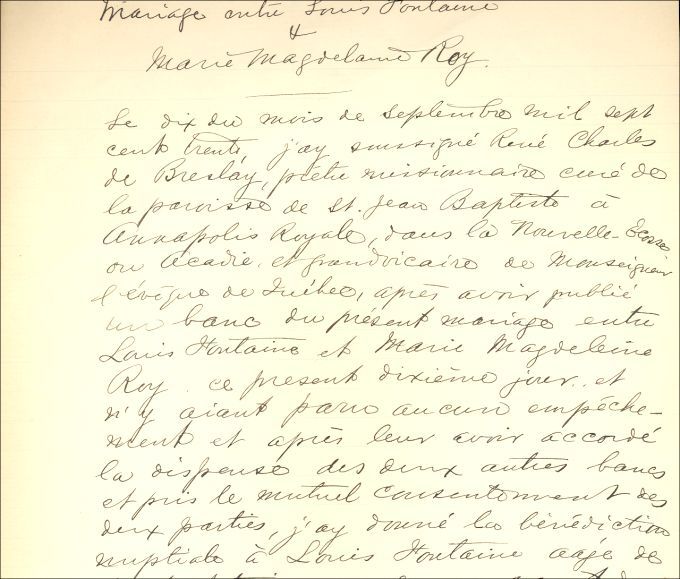 Mariage entre Louis Fontaine
&
Marie Magdelaine Roy.
Le dix du mois de septembre mil sept
cent trente, j'ay soussigné René Charles
de Breslay, prêtre missionnaire curé de
la paroisse de St. Jean Baptiste à
Annapolis Royale, dans la Nouvelle Ecosse
ou Acadie, et grandvicaire de Monseigneur
l'évêque de Québec, après avoir publié
un banc du présent mariage entre
Louis Fontaine et Marie Magdeleine
Roy ce present dixième jour, et
n'y aiant paru aucun empêche-
ment et après leur avoir accordé
la dispense des deux autres bancs
et pris le mutuel consentement des
deux parties, j'ay donné la bénédiction
nuptiale à Louis Fontaine aagé de